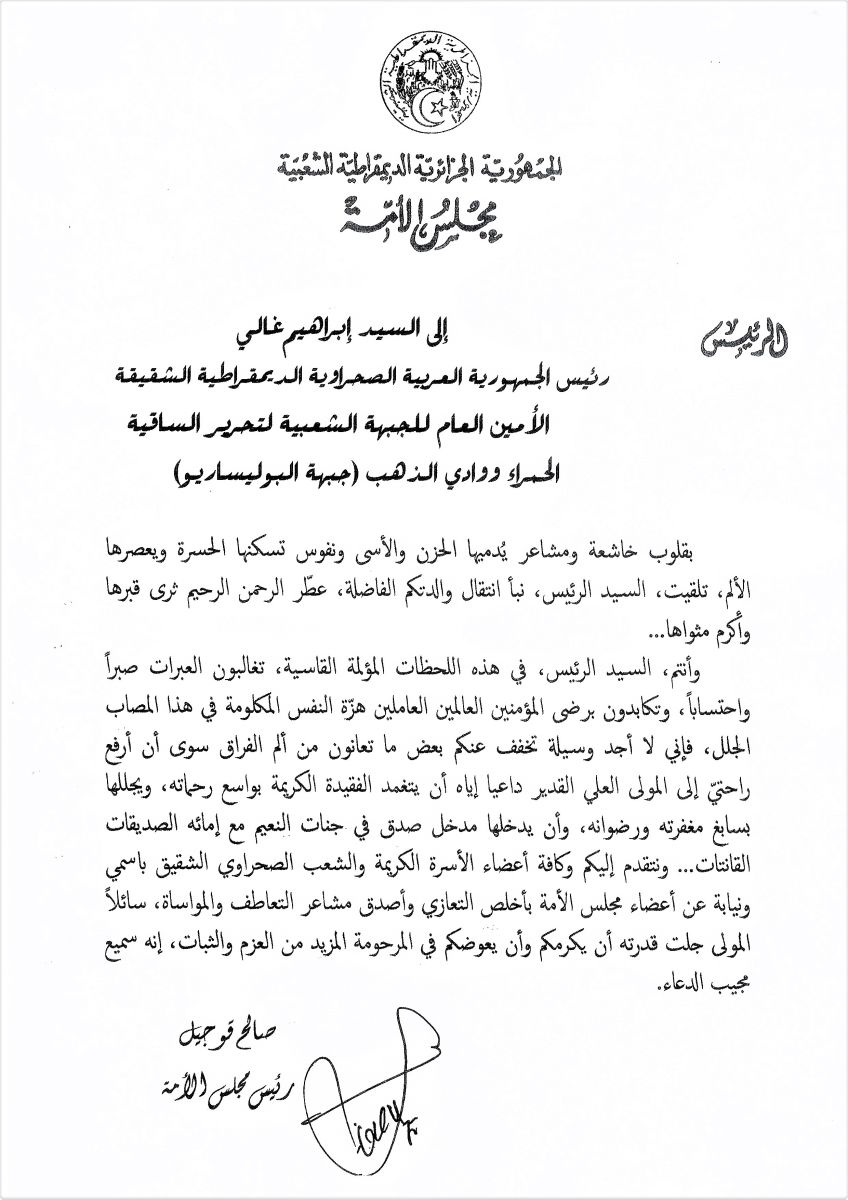 الجمهورية الجزائرية الديمقراطية الشعبية
الجمهوريّة الجزائريّة الديمقراطيّة الشّعبيّة
مجلس الأمّة
الرئيس
إلى السيد إبراهيم غالي
رئيس الجمهورية العربية الصحراوية الديمقراطية الشقيقة
الأمين العام للجبهة الشعبية لتحرير الساقية
الحمراء ووادي الذهب (جبهة البوليساريو)
بقلوب خاشعة ومشاعر يُدميها الحزن والأسى ونفوس تسكنها الحسرة ويعصرها
الألم، تلقيت، السيد الرئيس، نبأ انتقال والدتكم الفاضلة، عطّر الرحمن الرحيم ثرى قبرها
وأكرم مثواها...
وأنتم، السيد الرئيس، في هذه اللحظات المؤلمة القاسية، تغالبون العبرات صبراً
واحتساباً، وتكابدون برضى المؤمنين العالمين العاملين هزّة النفس المكلومة في هذا المصاب
الجلل، فإني لا أجد وسيلة تخفف عنكم بعض ما تعانون من ألم الفراق سوى أن أرفع
راحتيّ إلى المولى العلي القدير داعيا إياه أن يتغمد الفقيدة الكريمة بواسع رحماته، ويجللها
بسابغ مغفرته ورضوانه، وأن يدخلها مدخل صدق في جنات النعيم مع إمائه الصديقات
القانتات... ونتقدم إليكم وكافة أعضاء الأسرة الكريمة والشعب الصحراوي الشقيق باسمي
ونيابة عن أعضاء مجلس الأمة بأخلص التعازي وأصدق مشاعر التعاطف والمواساة، سائلاً
المولى جلت قدرته أن يكرمكم وأن يعوضكم في المرحومة المزيد من العزم والثبات، إنه سميع
مجيب الدعاء.
صالح قوجيل
رئيس مجلس الأمة